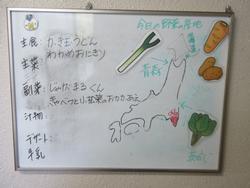 今日の野菜の産地
主食：かき玉うどん
わかめおにぎり
主菜：
副菜：じゃげまるくん
きゃべつと小松菜のおかかあえ
汁物：
デザート：
牛乳
青森